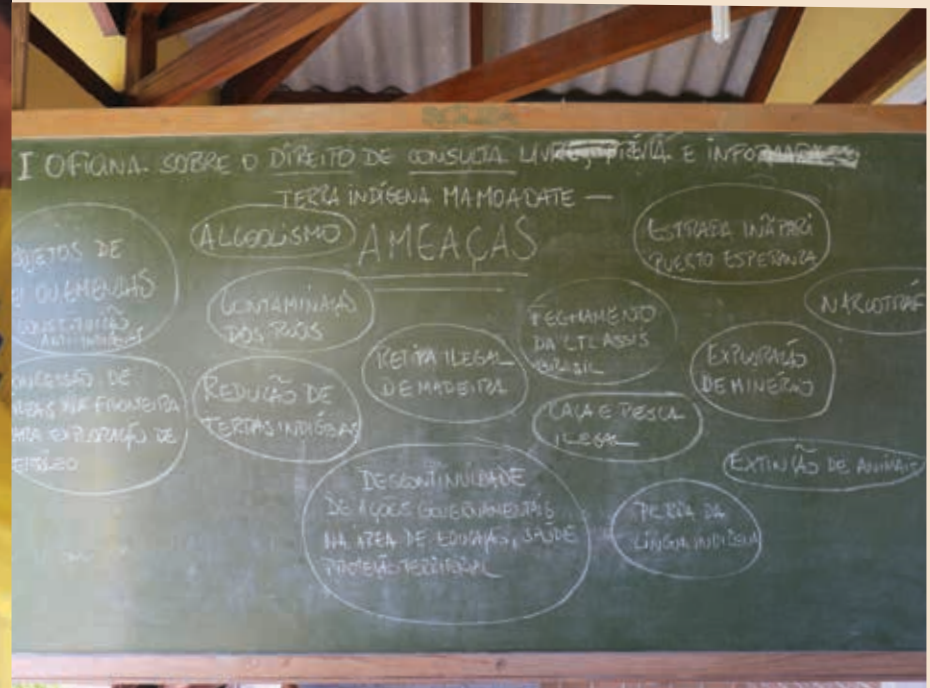 I OFICINA SOBRE O DIREITO DE CONSULTA LIVRE PRÉVIA E
TERRA INDÍGENA MAMOADATE —
AMEAÇAS
JETOS DE
EI OU EMENDAS
CONSTITUIÇÃO
ANTI-INDÍGENAS
ALCOOLISMO
ESTRADA IÑAPARI
PUERTO ESPERANZA
CONTAMINAÇÃO
DOS RIOS
FECHAMENTO
DA CTL ASSIS
BRASIL
NARCOTRÁF
RETIRA ILEGAL
DE MADEIRA
EXPLORAÇÃO
DE MINÉRIO
ONCESSÃO DE
NA FRONEIRA
ARA EXPLORAÇÃO DE
REDUÇÃO DE
TERRAS INDÍGEAS
CAÇA E PESCA
ILEGAL
EXTINÇÃO DE ANIMAIS
DESCONTINUIDADE
DE AÇÕES GOVERNAMENTAIS
NA ÁREA DE EDUCAÇÃO, SAÚDE
PROTEÇÃO TERRITORIAL
PERDA DA
LÍNGUA INDÍGENA